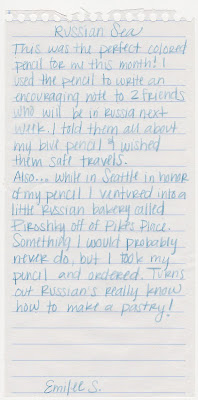 Russian Sea
This was the perfect colored
pencil for me this month! I
used the pencil to write an
encouraging note to 2 friends
who will be in russia next
week. I told them all about
my blue pencil & wished
them safe travels.
Also... while in Seattle in honor
of my pencil I ventured into a
little Russian bakery called
Piroshky off of Pike's Place.
Something I would probably
never do, but I took my
pencil and ordered. Turns
out Russian's really know
how to make a pastry!
Emilee S.